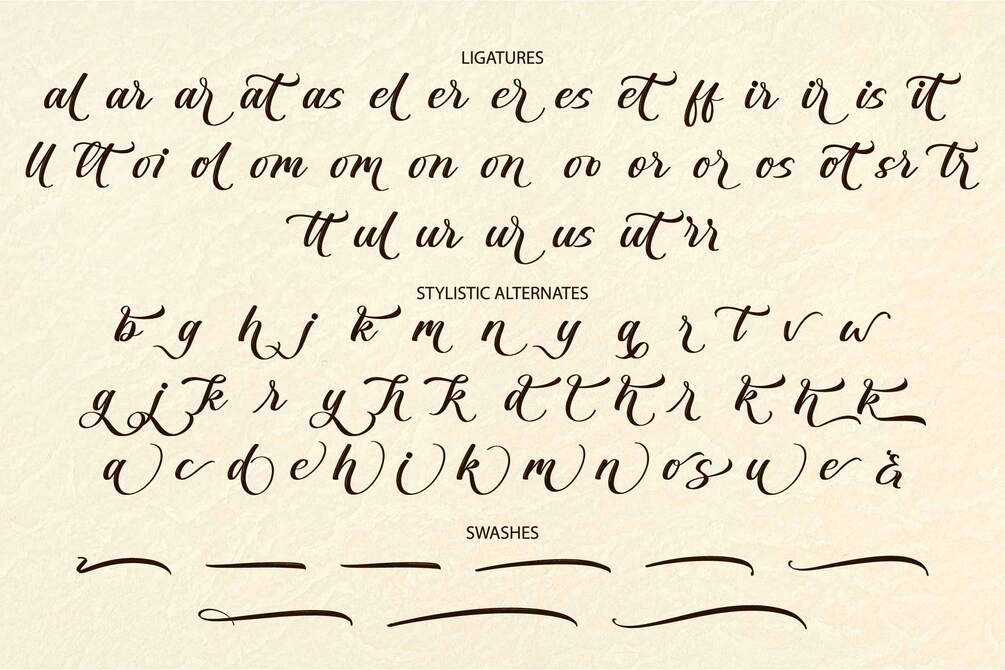 LIGATURES
al ar ar at as el er er es et ff ir ir is it
ll lt oi ol om om on on oo or or os ot sr tr
tt ul ur ur us ut rr
STYLISTIC ALTERNATES
b g h j k m n y q r t v w
g j k r y h k d t h r k h k
a c d e h i k m n o s u e &
SWASHES